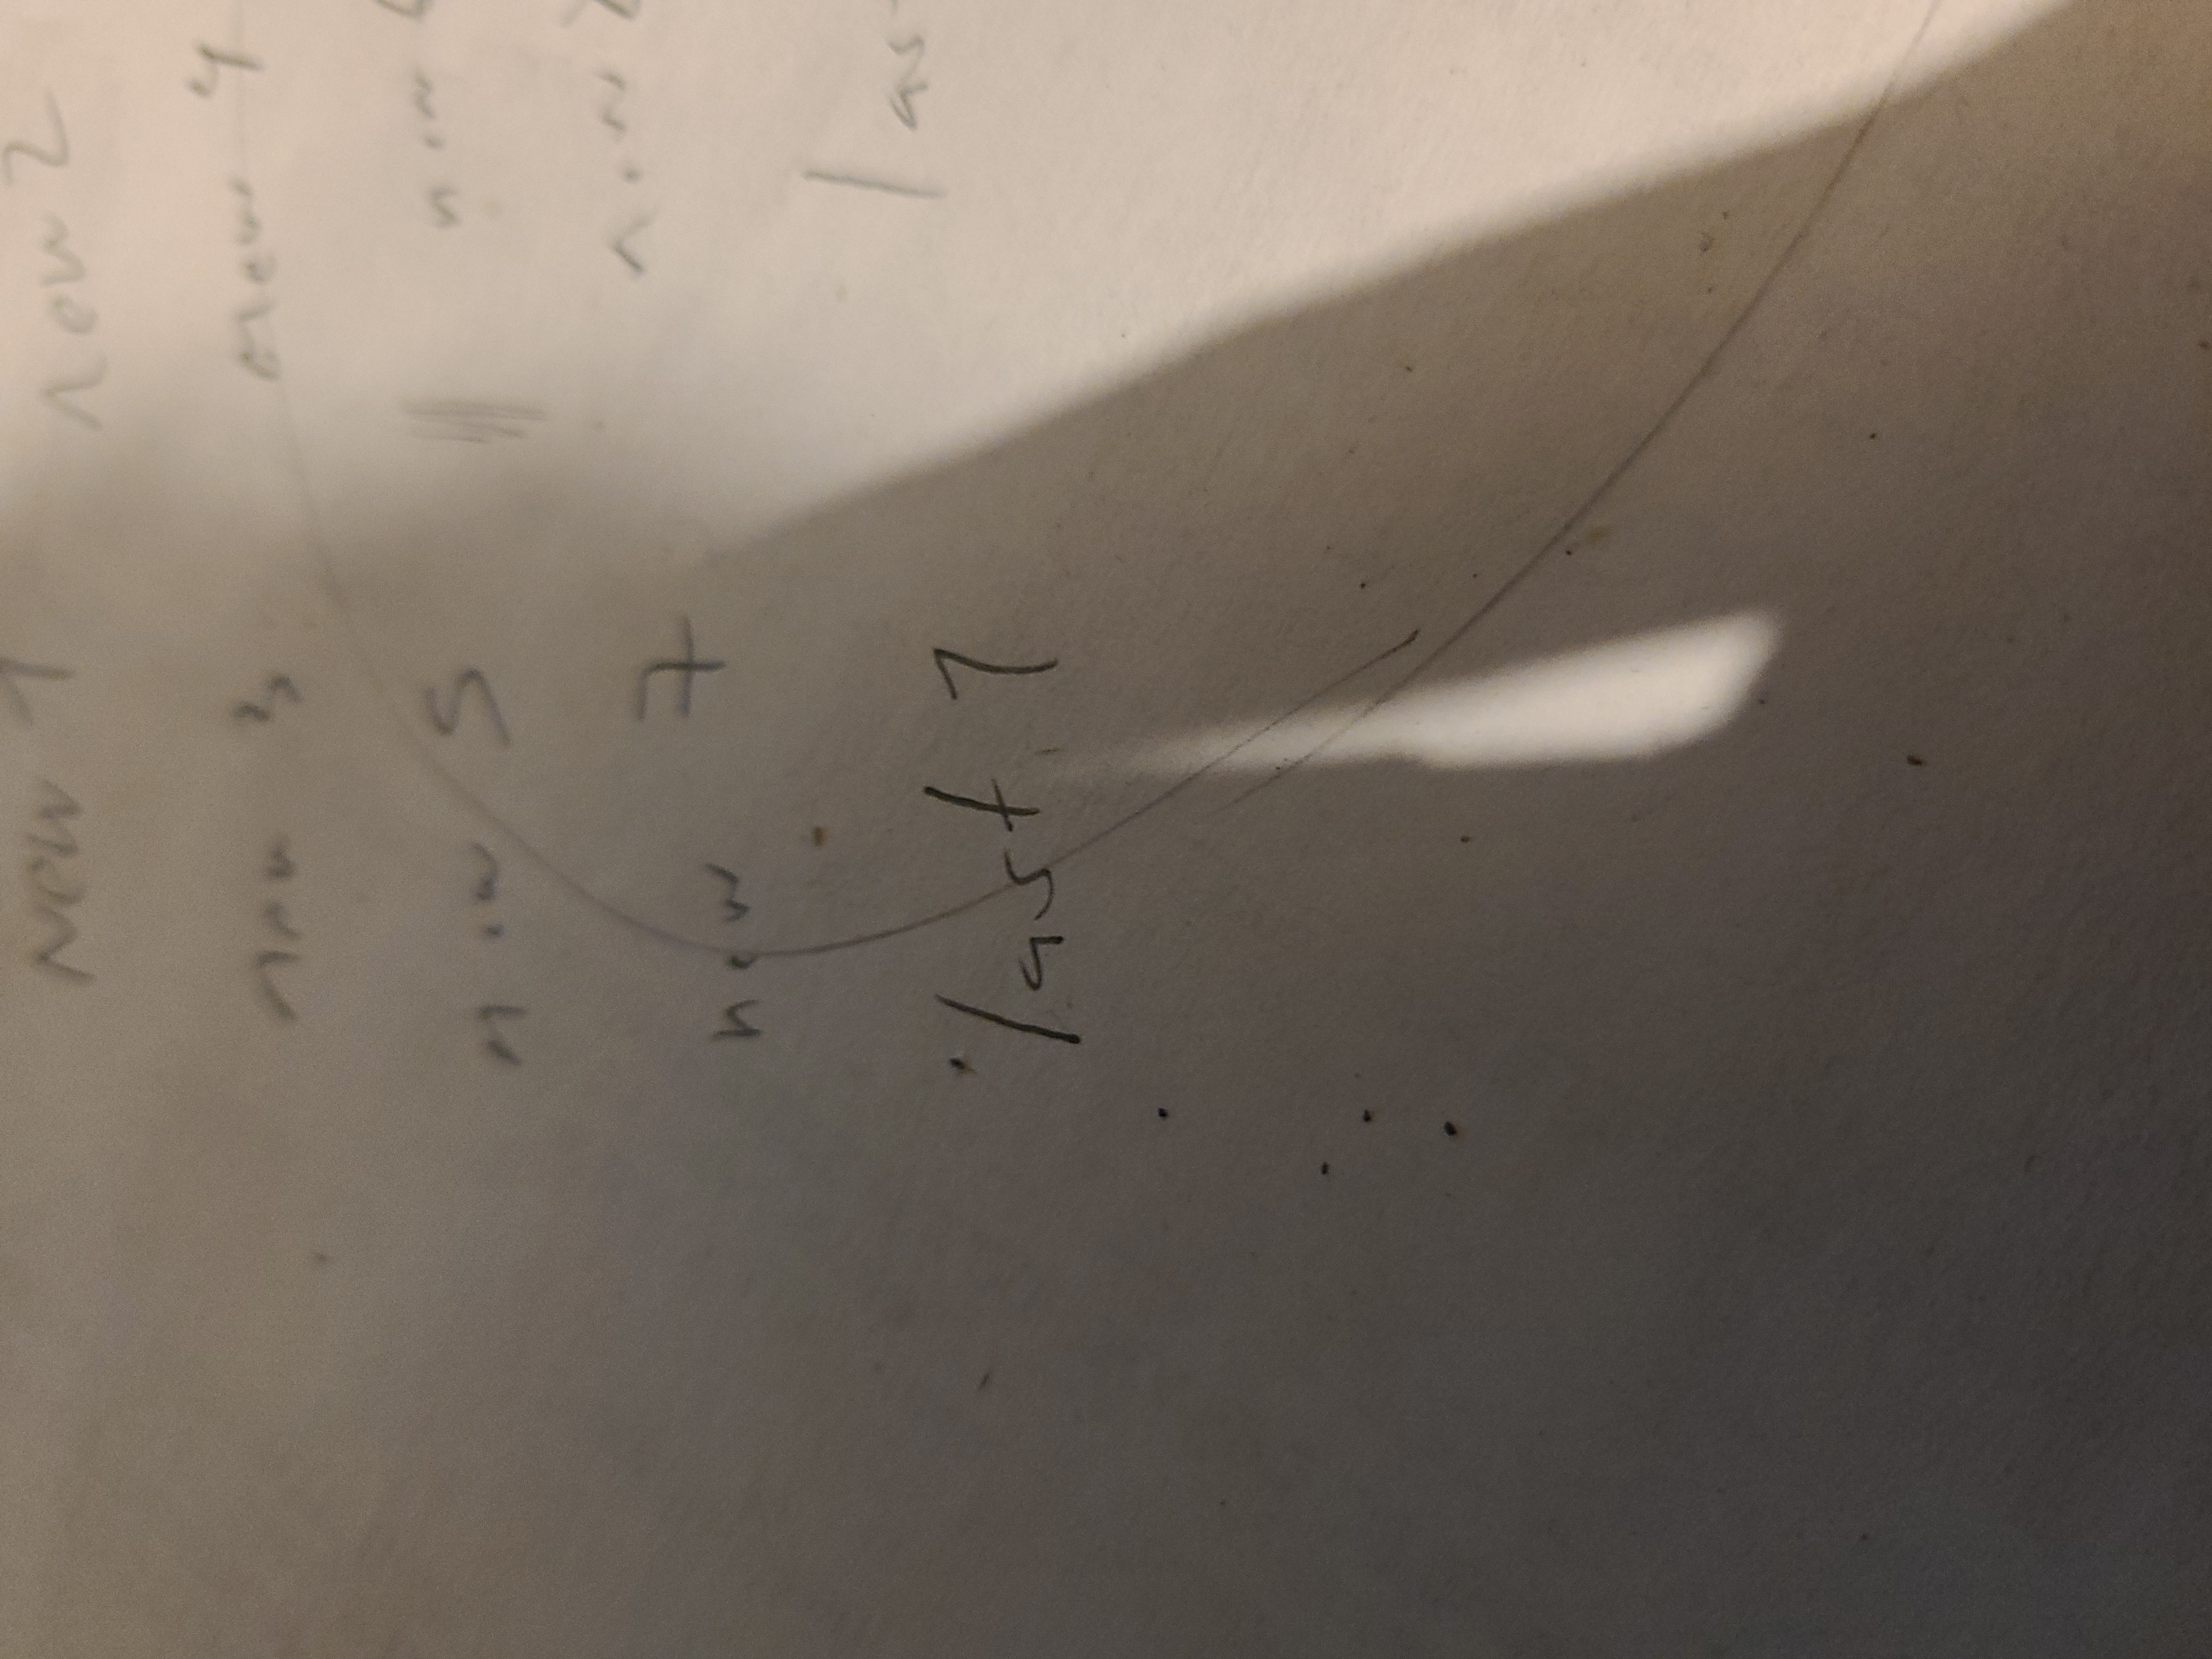 New 1 new 2
new 3 new 4
new 5 new
new 7 new
last 1 las